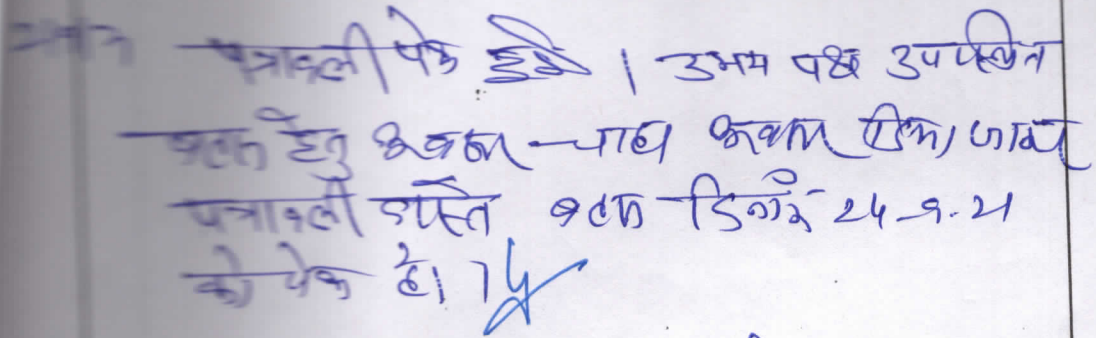 पत्रावली पेश हुई। उभय पक्ष उपस्थित
बहस हेतु अवसर चाहा अवसर दिया जावे
पत्रावली वास्ते बहस दिनाँक 24-9-21
को पेश हो।